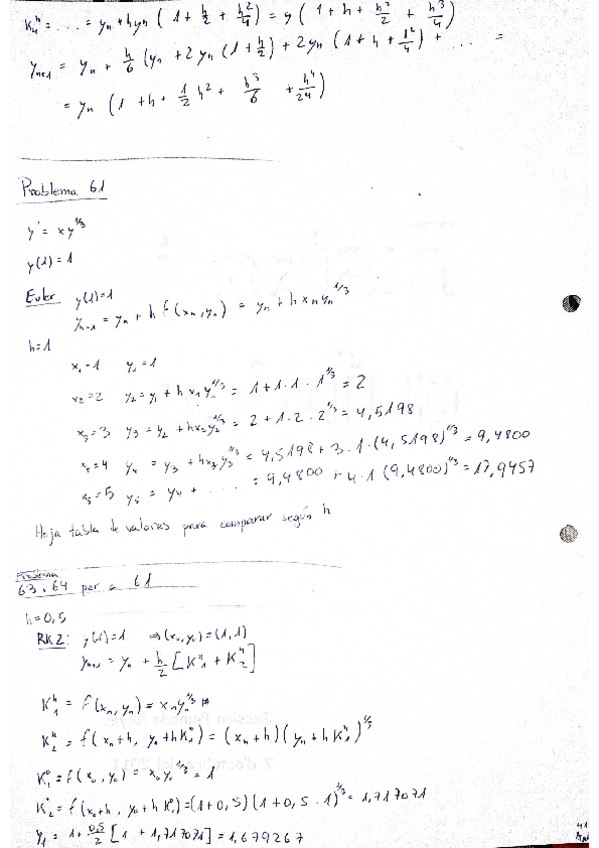 K₄ⁿ = ... = yn + hyn (1 + h/2 + h²/4) = y (1 + h + h²/2 + h³/4)
yn+1 = yn + h/6 (yn + 2yn (1 + h/2) + 2yn (1 + h/2 + h²/4) + ... =
= yn (1 + h + 1/2 h² + h³/6 + h⁴/24)
Problema 61
y' = xy^1/3
y(1) = 1
Euler y(1)=1
yn+1 = yn + h f(xn, yn) = yn + h xn yn^1/3
h=1
x₁=1 y₁=1
x₂=2 y₂ = y₁ + hx₁y₁^1/3 = 1 + 1·1·1^1/3 = 2
x₃=3 y₃ = y₂ + hx₂y₂^1/3 = 2 + 1·2·2^1/3 = 4,5198
x₄=4 y₄ = y₃ + hx₃y₃^1/3 = 4,5198 + 3·1·(4,5198)^1/3 = 9,4800
x₅=5 y₅ = y₄ + ... = 9,4800 + 4·1 (9,4800)^1/3 = 17,9457
Hoja tabla de valores para comparar según h
Problema
63 i 64 per a 61
h=0,5
RK2: y(1)=1 ⇒ (x₀,y₀)=(1,1)
yn+1 = yn + h/2 [K₁ⁿ + K₂ⁿ]
K₁ⁿ = f(xn, yn) = xn yn^1/3
K₂ⁿ = f(xn+h, yn+hK₁ⁿ) = (xn+h)(yn+hK₁ⁿ)^1/3
K₁⁰ = f(x₀, y₀) = x₀y₀^1/3 = 1
K₂⁰ = f(x₀+h, y₀+hK₁⁰) = (1+0,5)(1+0,5·1)^1/3 = 1,717071
y₁ = 1 + 0,5/2 [1 + 1,717071] = 1,679267